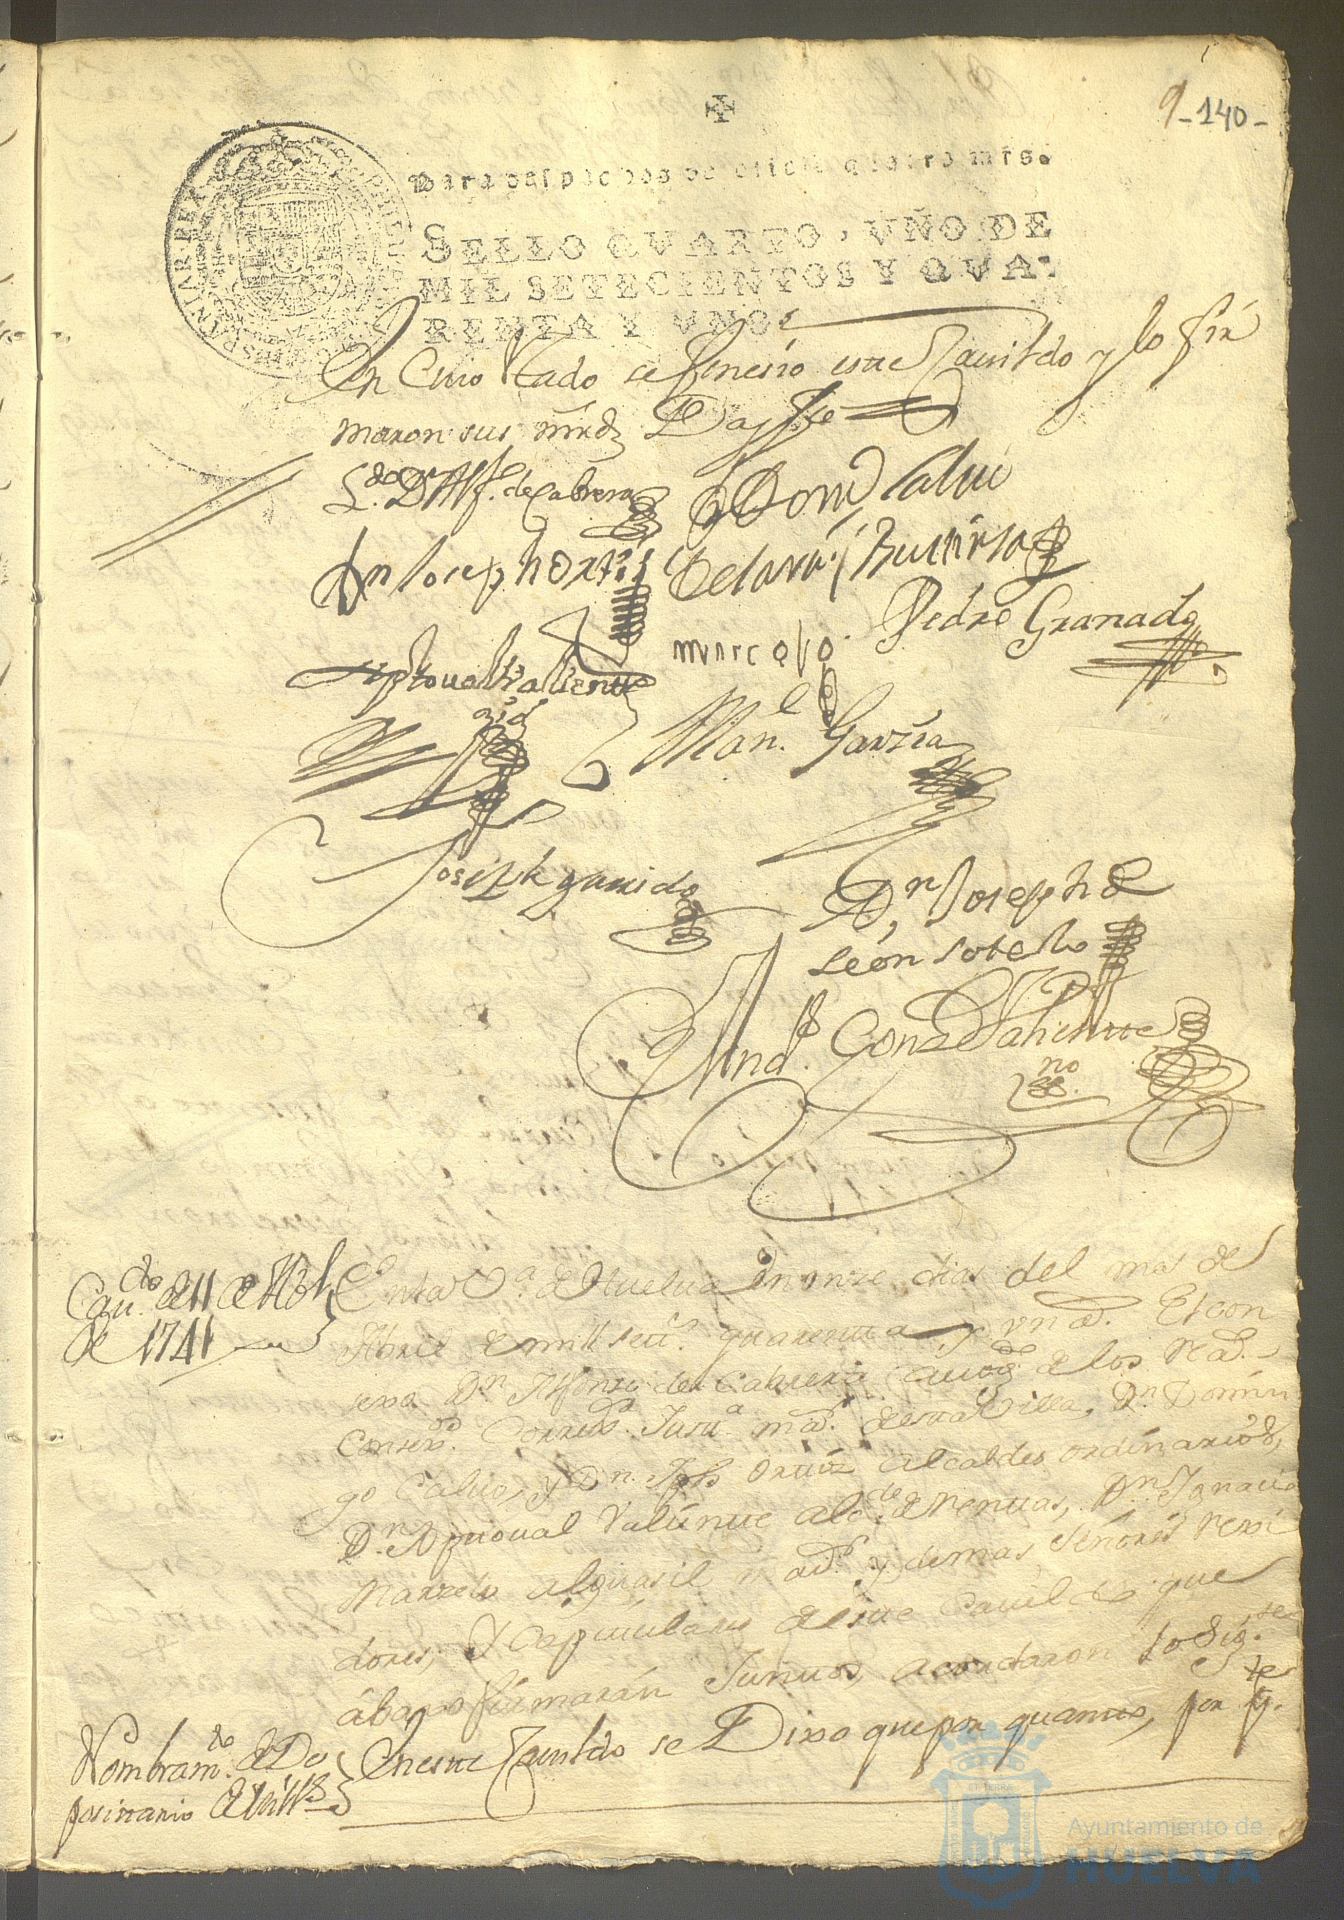 9 -140-
Para despachos de oficio quatro mrs.
SELLO QVARTO, VÑO DE
MIL SETECIENTOS Y QVA-
RENTA Y VNO.
HISPANIAR. REX
En Cuio estado se feneció este Cauildo y lo fir
maron sus mrds Doy fee
Ldo. Dn Alfo. de Cabrera
Domo Caluo
Dn Joseph Ortiz
Pedro Granado
Xptoual Valiente
Manl. Garzia
Joseph garrido
Dn Joseph de
León Sotelo
Ands. Gonz Valiente
no
Caudo. de 11 de Abl.
de 1741
En la Va. de Huelua en onze dias del mes de
Abril de mill sets. quarenta y un a.
Dn Alfonso de Cabrera Auogdo. de los Rs.
Consexos. Correxor. Justa. mor. de esta Villa, Dn Domin
go Caluo, y Dn. Jph Ortiz Alcaldes ordinarios,
Dn. Xptoual Valiente alcde. de Rentas, Dn Ignacio
alguasil mor. y demas Señores Rexi
dores, y Capitulares de este Cauildo que
ábaxo firmarán Juntos, acordaron lo Sigte.
Nombramto. de De
positario
En este Cauildo se Dixo que por quanto, por
Ayuntamiento de
HUELVA